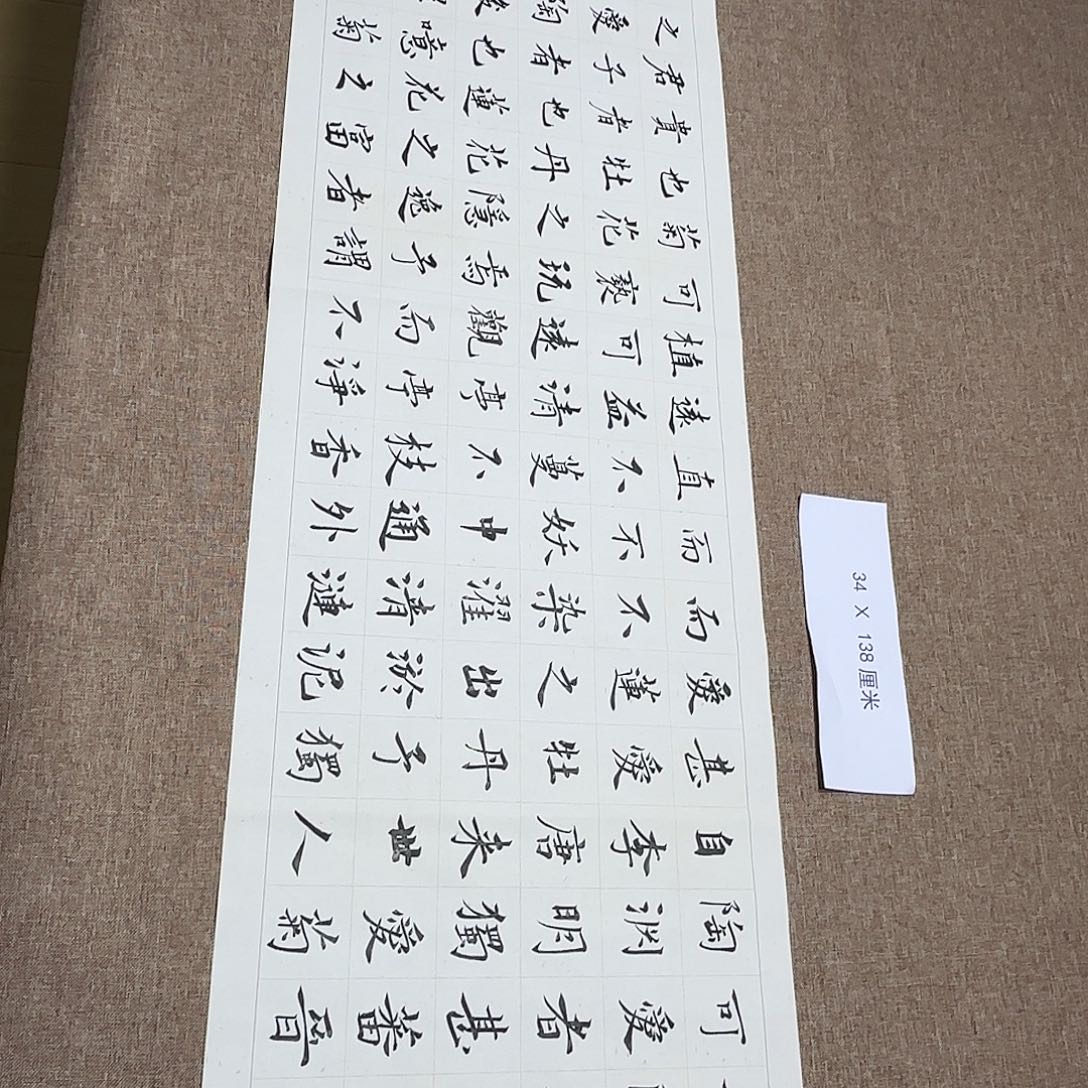 可愛者甚蕃晉
陶渊明獨愛菊
自李唐来世人
甚愛牡丹予獨
愛蓮之出淤泥
而不染濯清漣
而不妖中通外
直不蔓不枝香
遠益清亭亭淨
植可遠觀而不
可褻玩焉予謂
菊花之隱逸者
也牡丹花之富
貴者也蓮花之
君子者也噫菊
之愛
34 X 138厘米